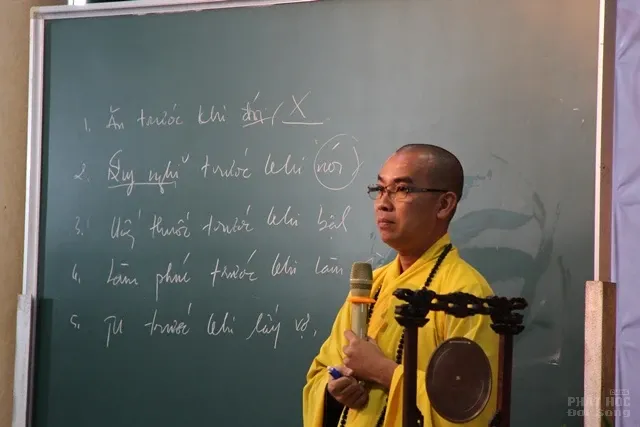 1. Ăn trước khi đói / X
2. Suy nghĩ trước khi nói
3. Uống thuốc trước khi bệnh
4. Làm phúc trước khi làm
5. Tu trước khi lấy vợ.
PHẬT HỌC
Đời Sống